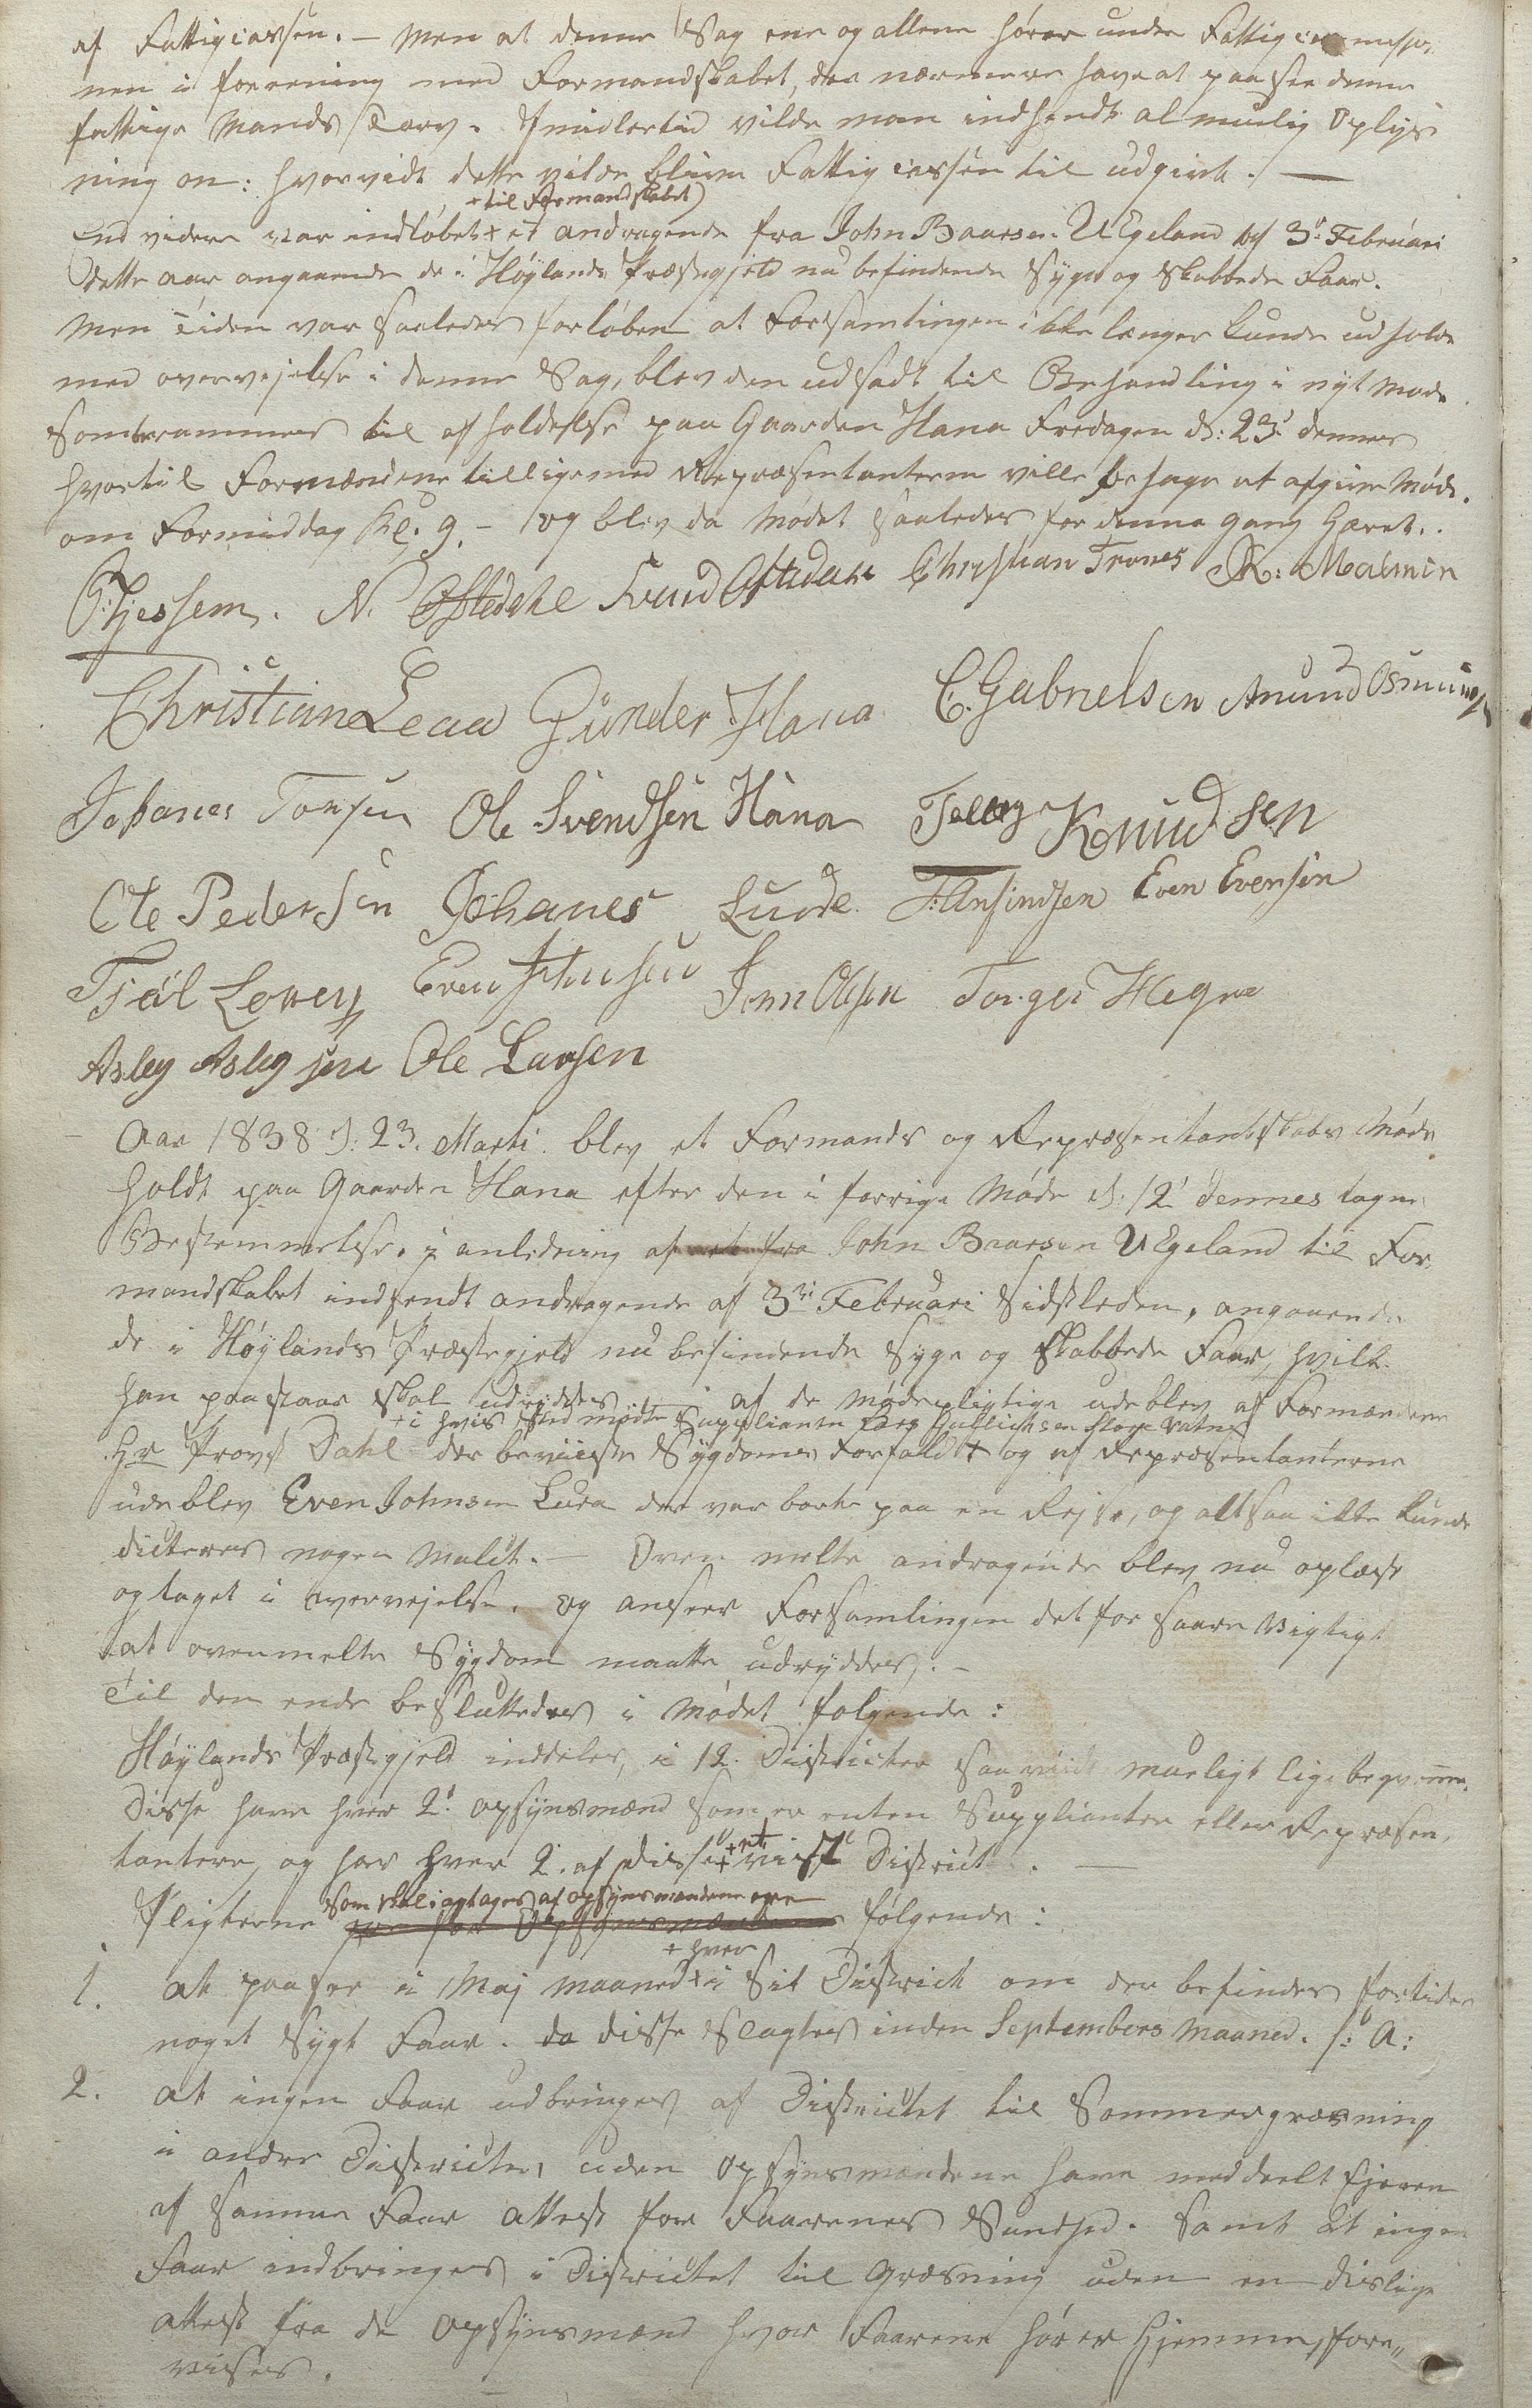 af Fattigcassen. – Men at denne Sag ene og allene hører under Fattigcommisio,
nen i forening med Formandskabet, der nærmere have at paasee denne
fattige Mands Tarv. Imidlertid vilde man indhendte al muelig Oplys
ning om: hvorvidt dette vilde blive Fattigcassen til udgivt. –
+ til Formandskabet)
End videre var indløbet + et andragende fra John Baarsen UEgeland af 3die Februari
dette aar angaaende de i Høylands Præstegjeld nu befindende Syge og Skabbede Faar.
Men Tiden var saaledes forløben at Forsamlingen ikke længer kunde udholde
med overvejelse i denne Sag, blev den udsadt til Behandling i nyt Møde
som berammes til afholdelse paa Gaarden Hana Fredagen d: 23de dennes
hvortil Formændene tilligemed Repræsentanterne ville behage at afgive Møde.
om Formiddag Kl. 9. – og blev da Mødet saaledes for denne gang hævet.
O. Tjessem. N. Oftedahl Svend Oftedahl Christian Trones R: Malmin
Christian Leaa Gunder Hana C. Gabrielsen Amund Osmunds
Johanes Tonsen Ole Svendsen Hana Tellag Knudsen
Ole Pedersen Johanes Lude. T: Ansindsen Even Evensen
Tjøl Lowey Even Johnsen John Olsen Torger Hegre
Asleg Aslegsen Ole Larsen
Aar 1838 d: 23. Marti blev et Formands og Repræsentantskabs Møde
holdt paa Gaarden Hana efter den i forrige Møde d. 12te dennes tagne
Bestemmelse. i anledning af John Baarsen UEgeland til For,
mandskabet indsendt andragende af 3die Februari Sidstleden, angaaende
de i Høylands Præstegjeld nu befindende Syge og Skabbede Faar, hvilke
han paastaar skal udryddes. – af de Mødepligtige udeblev af Formændene
+ i hvis sted mødte Supplianten Lars Gullichsen Store Vatne
Hr Provst Dahl der beviiste Sygdoms Forfald + og af Repræsentanterne
udeblev Even Johnsen Lura der var borte paa en Rejse, og altsaa ikke kunde
dicteres nogen Mulct. – Oven melte andragende blev nu oplæst
og taget i overvejelse. og anseer Forsamlingen det for saare Vigtigt
at ovenmelte Sygdom maatte udryddes. –
Til den ende besluttedes i Mødet følgende:
Høylands Præstegjeld inddeles, i 12. Districter saavidt mueligt lige beqvemme.
Disse have hver 2de Opsynsmænd som er enten Supplianter eller Repræsen,
tantere, og har hver 2. af disse + et vist District. –
Pligterne som skal iagtages af opsynsmændene ere følgende:
+ hver
1. At paasee i Maj maaned + i Sit District om der befindes for tiden
noget sygt Faar. da disse Slagtes inden Septembers Maaned. /: A:
2. At ingen Faar udbringes af Districtet til Sommergræsning
i andre Districter, uden Opsynsmændene have meddeelt Ejeren
af samme Faar attest for Faarenes Sundhed. Samt at ingen
Faar indbringes i Districtet til Græsning uden en dislige
attest fra de Opsynsmænd hvor Faarene hører hjemme, fore„
vises.